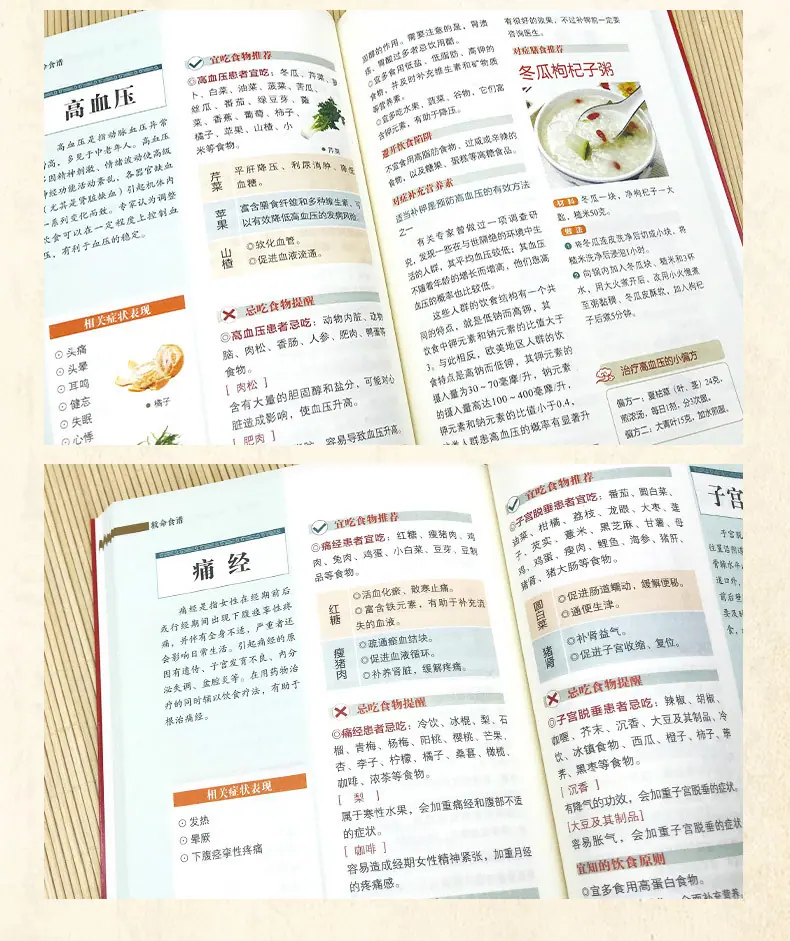 命食谱
高血压
高血压是指动脉血压异常
增高，多见于中老年人。高血压
因精神刺激、情绪波动使高级
神经功能活动紊乱，各器官缺血
（尤其是肾脏缺血）引起机体内
一系列变化而致。专家认为调整
饮食可以在一定程度上控制血
压，有利于血压的稳定。
相关症状表现
⊙头痛
⊙头晕
⊙耳鸣
⊙健忘
⊙失眠
⊙心悸
● 橘子
宜吃食物推荐
◎高血压患者宜吃：冬瓜、芹菜、
卜、白菜、油菜、菠菜、苦瓜、
丝瓜、番茄、绿豆芽、
菜、香蕉、葡萄、柿子、
橘子、苹果、山楂、小
米等食物。
● 芹菜
芹菜
平肝降压、利尿消肿、降低
血糖。
苹果
富含膳食纤维和多种维生素，可
以有效降低高血压的发病风险。
山楂
◎软化血管。
◎促进血液流通。
忌吃食物提醒
◎高血压患者忌吃：动物内脏、动物
脑、肉松、香肠、人参、肥肉、鸭蛋等
食物。
[ 肉松 ]
含有大量的胆固醇和盐分，可能对心
脏造成影响，使血压升高。
[ 肥肉 ]
容易导致血压升高。
固醇的作用。需要注意的是，胃溃
疡、胃酸过多者忌饮用醋。
◎宜多食用低盐、低脂肪、高钾的
食物，并及时补充维生素和矿物质
等营养素。
◎宜多吃水果、蔬菜、谷物，它们富
含钾元素，有助于降压。
避开饮食陷阱
不宜食用高脂肪食物、过咸或辛辣的
食物，以及糖果、蛋糕等高糖食品。
对症补充营养素
适当补钾是预防高血压的有效方法
之一
有关专家曾做过一项调查研
究，发现一些在与世隔绝的环境中生
活的人群，其平均血压较低；其血压
不随着年龄的增长而增高，他们患高
血压的概率也比较低。
这些人群的饮食结构有一个共
同的特点，就是低钠而高钾，其
饮食中钾元素和钠元素的比值大于
3。与此相反，欧美地区人群的饮
食特点是高钠而低钾，其钾元素的
摄入量为30～70毫摩/升，钠元素
的摄入量高达100～400毫摩/升，
钾元素和钠元素的比值小于0.4，
人群患高血压的概率有显著升
有很好的效果，不过补钾前一定要
咨询医生。
对症膳食推荐
冬瓜枸杞子粥
材料 冬瓜一块，净枸杞子一大
匙，糙米50克。
做法
❶ 将冬瓜连皮洗净后切成小块，将
糙米洗净后浸泡1小时。
❷ 向锅内加入冬瓜块、糙米和3杯
水，用大火煮开后，改用小火慢煮
至粥黏稠、冬瓜皮酥软，加入枸杞
子后煮5分钟。
治疗高血压的小偏方
偏方一：夏枯草（叶、茎）24克，
煎浓汤，每日1剂，分1次服。
偏方二：大青叶15克，加水煎服。
救命食谱
痛经
痛经是指女性在经期前后
或行经期间出现下腹痉挛性疼
痛，并伴有全身不适，严重者还
会影响日常生活。引起痛经的原
因有遗传、子宫发育不良、内分
泌失调、盆腔炎等。在用药物治
疗的同时辅以饮食疗法，有助于
根治痛经。
相关症状表现
⊙发热
⊙晕厥
⊙下腹痉挛性疼痛
宜吃食物推荐
◎痛经患者宜吃：红糖、瘦猪肉、鸡
肉、兔肉、鸡蛋、小白菜、豆芽、豆制
品等食物。
红糖
◎活血化瘀、散寒止痛。
◎富含铁元素，有助于补充流
失的血液。
瘦猪肉
◎疏通瘀血结块。
◎促进血液循环。
◎补养肾脏，缓解疼痛。
忌吃食物提醒
◎痛经患者忌吃：冷饮、冰棍、梨、石
榴、青梅、杨梅、阳桃、樱桃、芒果、
杏、李子、柠檬、橘子、桑葚、橄榄、
咖啡、浓茶等食物。
[ 梨 ]
属于寒性水果，会加重痛经和腹部不适
的症状。
[ 咖啡 ]
容易造成经期女性精神紧张，加重月经
的疼痛感。
宜吃食物推荐
◎子宫脱垂患者宜吃：番茄、圆白菜、
油菜、柑橘、荔枝、龙眼、大枣、莲
子、芡实、薏米、黑芝麻、甘薯、母
鸡、鸡蛋、瘦肉、鲤鱼、海参、猪肝、
猪肾、猪大肠等食物。
圆白菜
◎促进肠道蠕动，缓解便秘。
◎通便生津。
猪肾
◎补肾益气。
◎促进子宫收缩、复位。
忌吃食物提醒
◎子宫脱垂患者忌吃：辣椒、胡椒、
咖喱、芥末、沉香、大豆及其制品、冷
饮、冰镇食物、西瓜、橙子、柿子、荸
荠、黑枣等食物。
[ 沉香 ]
有降气的功效，会加重子宫脱垂的症状。
[大豆及其制品]
容易胀气，会加重子宫脱垂的症状
宜知的饮食原则
◎宜多食用高蛋白食物。
子宫